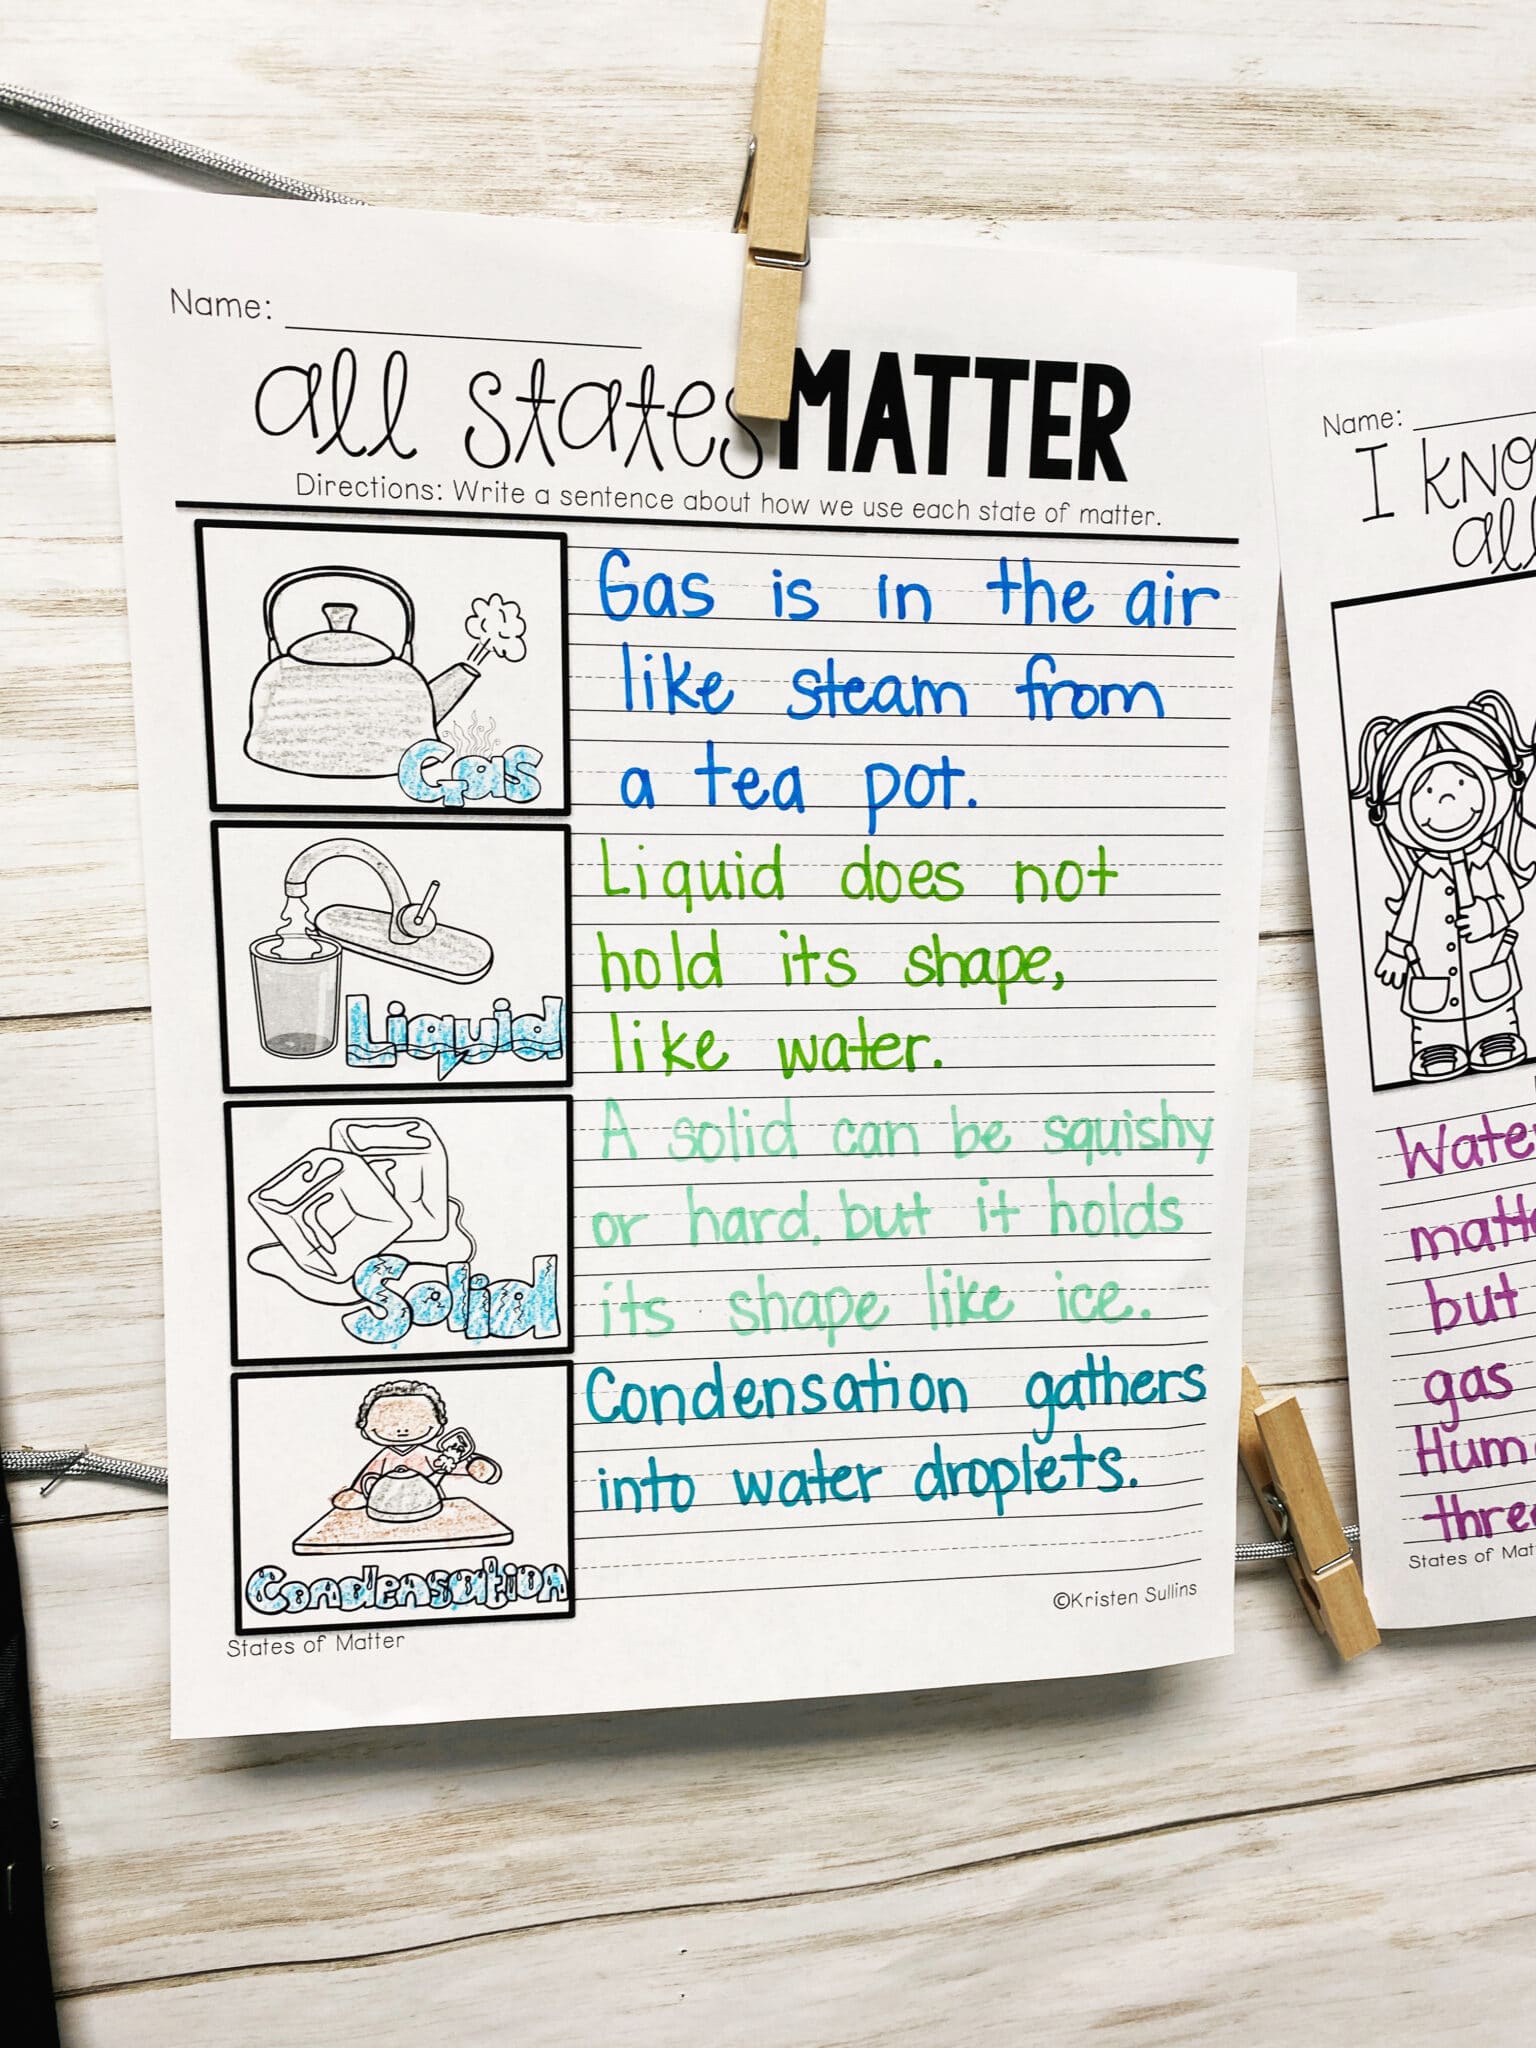 Name:
all states MATTER
Directions: Write a sentence about how we use each state of matter.
Gas
Gas is in the air
like steam from
a tea pot.
Liquid
Liquid does not
hold its shape,
like water.
Solid
A solid can be squishy
or hard, but it holds
its shape like ice.
Condensation
Condensation gathers
into water droplets.
©Kristen Sullins
States of Matter
Name:
I
all
matt
but
gas
States of Mat